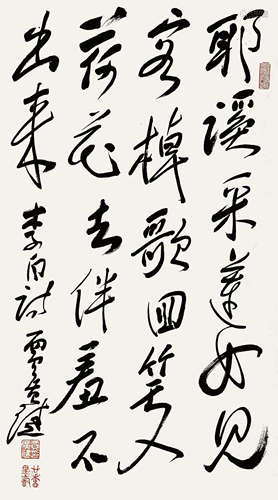 耶溪采蓮女見
客棹歌回笑入
荷花去佯羞不
出來 李白詩